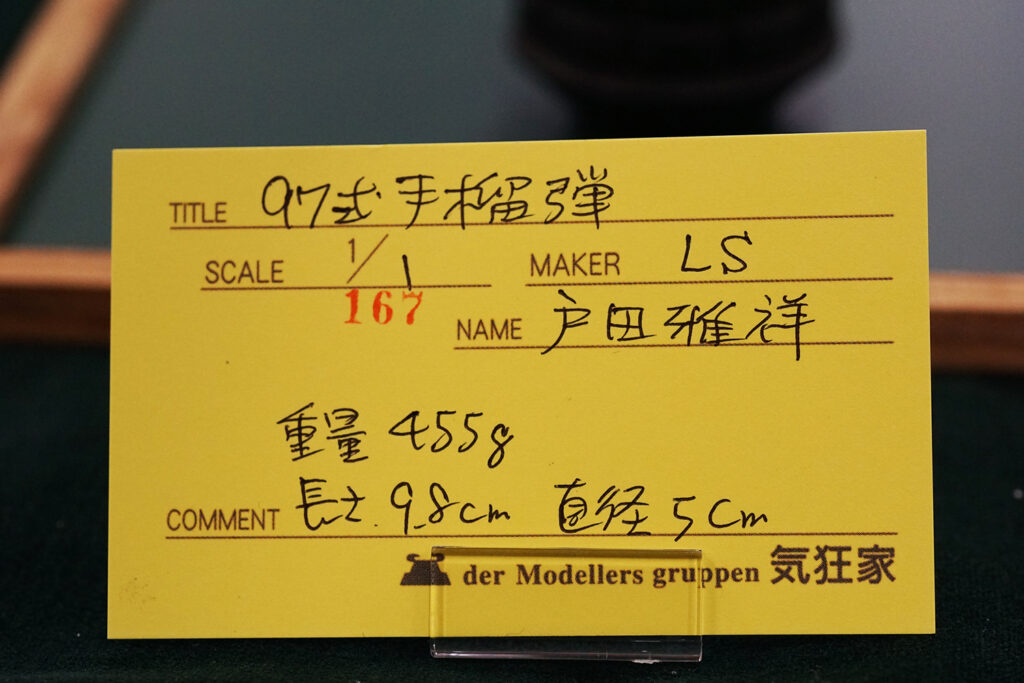 TITLE 97式手榴弾
SCALE 1/1 MAKER LS
167
NAME 戸田雅祥
重量 455g
COMMENT 長さ 9.8cm 直径 5cm
der Modellers gruppen 気狂家